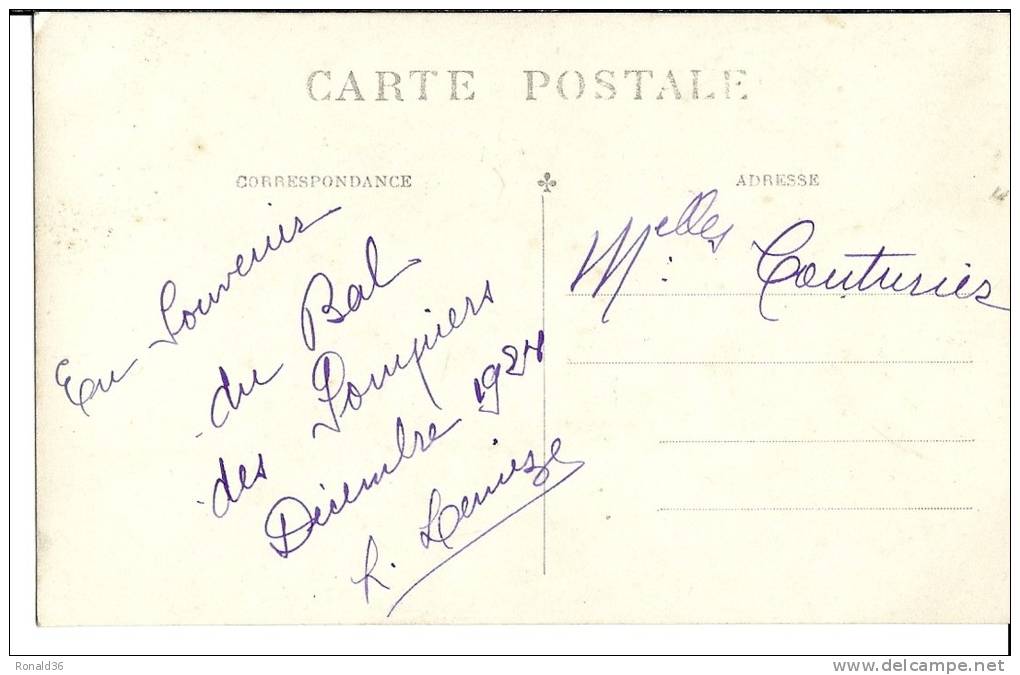 CARTE POSTALE
CORRESPONDANCE
ADRESSE
En Souvenir
du Bal
des Pompiers
Décembre 1924
Melles Couturier
Ronald36
www.delcampe.net